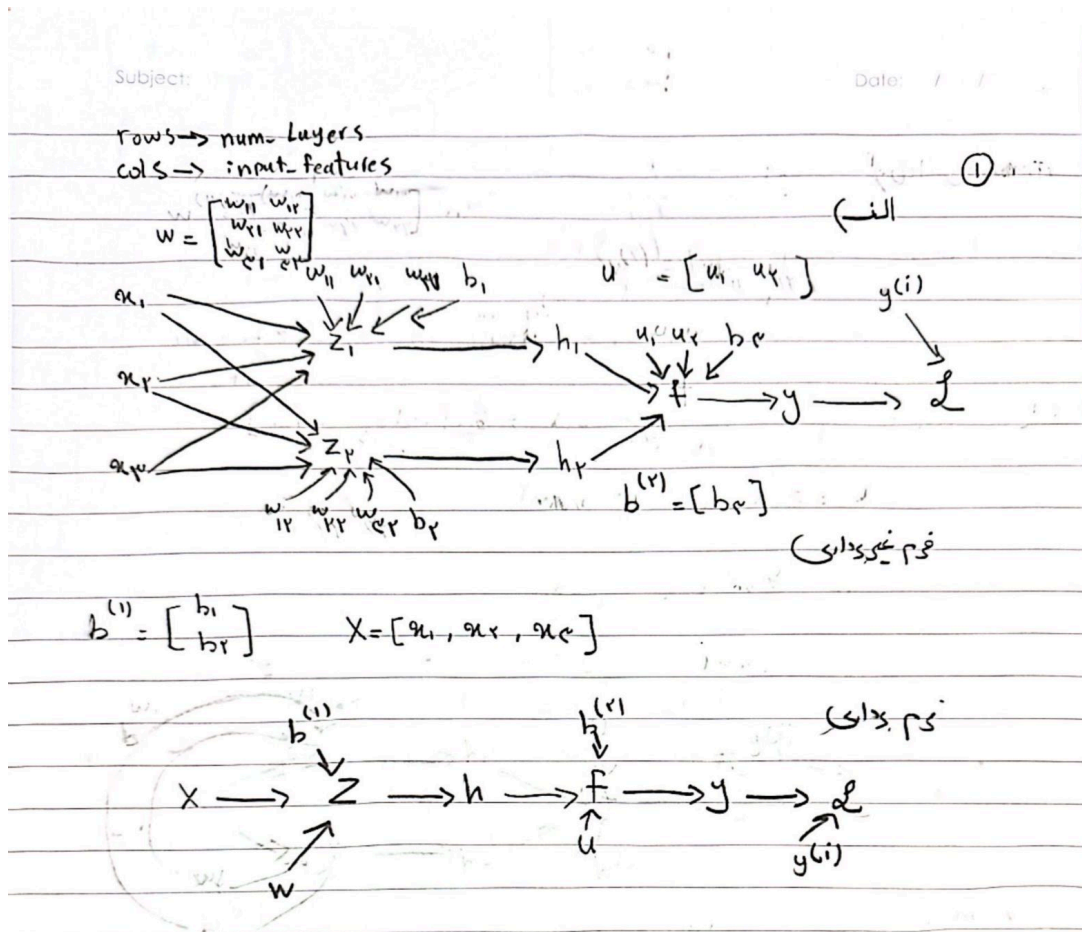 Subject:
Date: / /
rows → num_Layers
cols → input_features
①
الف)
w = [w₁₁ w₁₂
w₂₁ w₂₂
w₃₁ w₃₂]
w₁₁ w₂₁ b₁
u = [u₁ u₂]
y⁽ⁱ⁾
x₁
z₁ → h₁
u₁ u₂ b₃
x₂
f → y → L
x₃
z₂ → h₂
w₁₂ w₂₂ w₃₂ b₂
b⁽²⁾ = [b₃]
فرم غیربرداری
b⁽¹⁾ = [b₁
b₂]
X = [x₁, x₂, x₃]
فرم برداری
b⁽¹⁾
b⁽²⁾
X → Z → h → f → y → L
w
u
y⁽ⁱ⁾